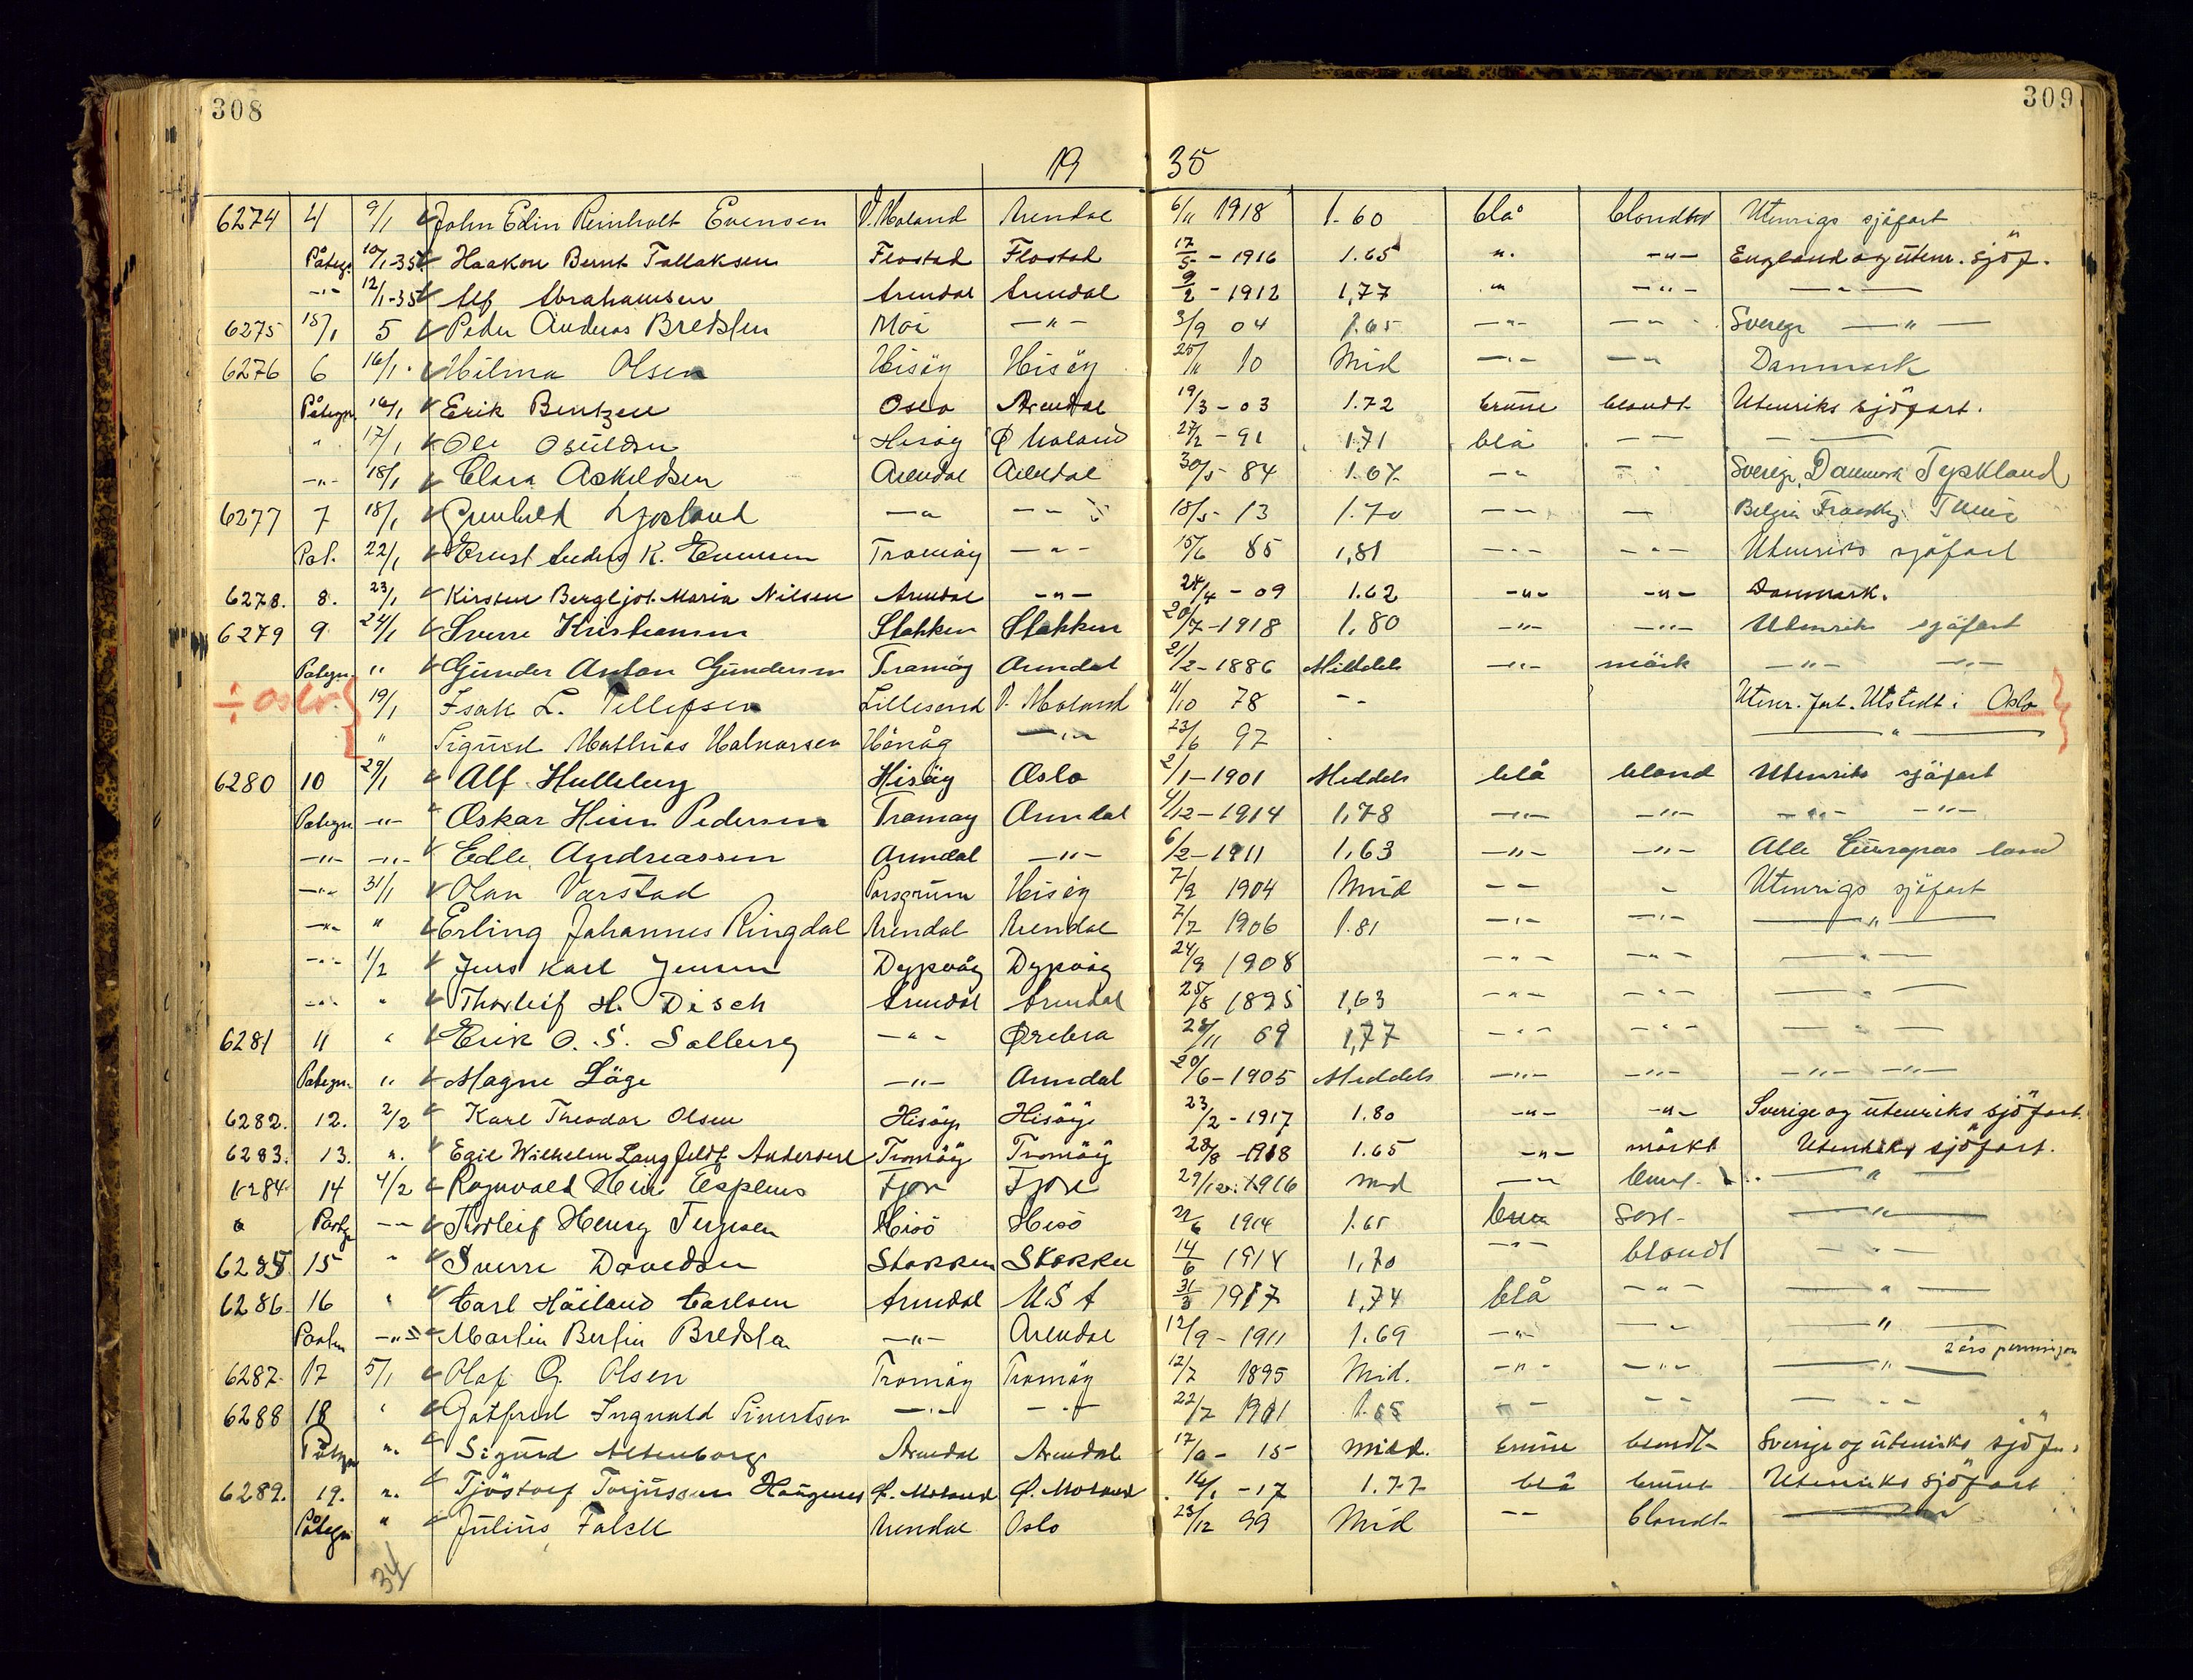 308
309
19 35
6274 4 9/1 John Edin Reinholt Evensen V. Moland Arendal 6/11 1918 1.60 blå blondt Utenrigs sjöfart
Påtegn 10/1-35 Haakon Bernt Tallaksen Flostad Flostad 17/5 - 1916 1.65 " -"- England og utenr. sjöf.
-"- 12/1-35 Alf Abrahamsen Arendal Arendal 9/2 - 1912 1,77 " -"- -"-
6275 15/1 5 Peder Andreas Bredsten Moi -"- 3/9 04 1.65 -"- -"- Sverige -"-
6276 6 16/1 Wilma Olsen Hisöy Hisöy 25/11 10 Mid -"- -"- Danmark
Påtegn 16/1 Erik Bentzen Oslo Arendal 19/3 - 03 1.72 brune blondt Utenriks sjöfart.
" 17/1 Ole Osuldsen Hisöy Ø Moland 27/2 - 91 1.71 blå - - -
-"- 18/1 Clara Askildsen Arendal Arendal 30/5 84 1.67 -"- -"- Sverige, Danmark Tyskland
6277 7 18/1 Gunhild Ljosland -"- -"- 18/5 - 13 1.70 - - - Belgia Frankrig
Pat. 22/1 Ernst Anders K. Evensen Tromöy -"- 15/6 85 1,81 -"- -"- Utenriks sjöfart
6278. 8. 23/1 Kirsten Bergljot Maria Nilsen Arendal -"- 24/4 - 09 1.62 -"- -"- Danmark.
6279 9 24/1 Sverre Kristiansen Stokken Stokken 20/7 - 1918 1,80 -"- -"- Utenriks sjöfart
Påtegn. " Gunder Anton Gundersen Tromöy Arendal 21/2 - 1886 Middels -"- mörk -"- -"-
÷ Oslo. 19/1 Isak L. Tellefsen Lillesand V. Moland 11/10 78 - Utenr. fart. Utstedt i Oslo
" Sigurd Mathias Halvorsen Hönåg -"- 23/6 97 -"-
6280 10 29/1 Alf Hulleberg Hisöy Oslo 2/1 - 1901 Middels blå blond Utenriks sjöfart
Påtegn -"- Oskar Hein Pedersen Tromöy Arendal 4/12 - 1914 1,78 -"- -"- -"- -"-
-"- -"- Edle Andreassen Arendal -"- 6/2 - 1911 1,63 -"- -"- Alle Europas land
-"- 31/1 Olav Varstad Porsgrunn Hisöy 7/9 1904 Mid - - - Utenrigs sjöfart
-"- " Erling Johannes Ringdal Arendal Arendal 7/7 1906 1.81 -"- -"- -"-
-"- 1/2 Jens Karl Jensen Dypvåg Dypvåg 24/9 1908 -"- -"- -"-
-"- " Thorleif H. Disch Arendal Arendal 25/8 1895 1,63 -"- -"- -"-
6281 11 " Erik O. S. Solberg -"- Ørebro 28/11 69 1,77 -"- -"- -"-
Påtegn. " Magne Låge -"- Arendal 20/6 - 1905 Middels -"- -"- -"- -"-
6282. 12. 2/2 Karl Theodor Olsen Hisöy Hisöy 23/2 - 1917 1.80 -"- -"- Sverige og utenriks sjöfart.
6283. 13. ". Egil Wilhelm Langfeldt Andersen Tromöy Tromöy 28/8 - 1918 1.65 -"- mörkt Utenriks sjöfart.
6284 14 4/2 Ragnvald Hein Espenes Fjære Fjære 29/12 1916 Mid -"- brunt -"-
" Påteg -- Thorleif Henry Terjesen Hisö Hisö 22/6 1914 1.65 brun sort -"-
6285 15 " Sverre Davidsen Stokken Stokken 14/6 1914 1,70 -"- blondt -"-
6286 16 " Carl Håiland Carlsen Arendal USA 31/3 1917 1,74 blå -"- -"-
Påtegn -"- Martin Bertin Bredsten -"- Arendal 12/9 - 1911 1.69 -"- -"- -"-
2 års permisjon
6287 17 5/1 Olaf G. Olsen Tromöy Tromöy 12/7 1895 Mid. -"- -"- -"-
6288 18 " Gotfred Ingvald Sivertsen -"- -"- 22/7 1911 1.65 -"- -"- -"-
Påtegn ". Sigurd Altenborg Arendal Arendal 17/6 - 15 Midd. brune blondt Sverige og utenriks sjöfa.
6289. 19. ". Tjöstolf Torjussen Haugenes Ø. Moland Ø. Moland 16/1 - 17 1.77 blå brunt Utenriks sjöfart
Påtegn " Julius Falck Arendal Oslo 23/12 99 Mid -- blondt
34